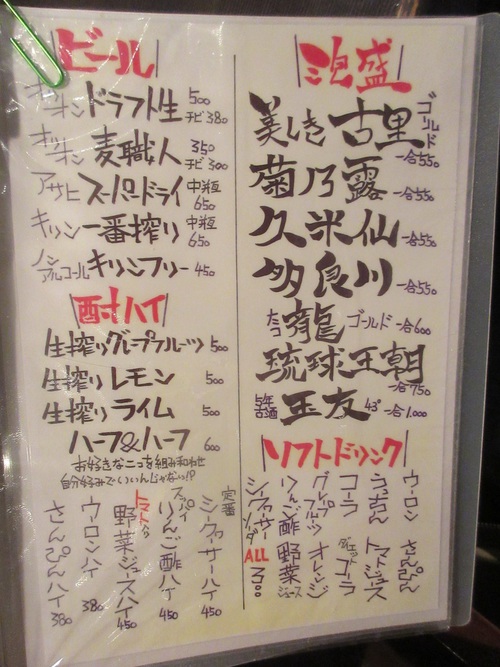 ビール
オリオンドラフト生 500
チビ 380
オリオン麦職人 350
チビ 300
アサヒスーパードライ 中瓶 650
キリン一番搾り 中瓶 650
ノンアルコールキリンフリー 450
酎ハイ
生搾りグレープフルーツ 500
生搾りレモン 500
生搾りライム 500
ハーフ&ハーフ 600
お好きな二つを組み合わせ
自分好みでいいんじゃない!?
定番シークヮサーハイ 450
スッパイりんご酢ハイ 450
トマト入り野菜ジュースハイ 450
ウーロンハイ 380
さんぴんハイ 380
泡盛
美しき古里 ゴールド 一合550
菊乃露 一合550
久米仙 一合550
多良川 一合550
たつ龍 ゴールド 一合600
琉球王朝 一合750
5年古酒 玉友 43° 一合1,000
ソフトドリンク
ウーロン さんぴん
うっちん トマトジュース
コーラ ダイエットコーラ
グレープフルーツ オレンジ
りんご酢 野菜ジュース
シークヮーサーソーダ
ALL 300